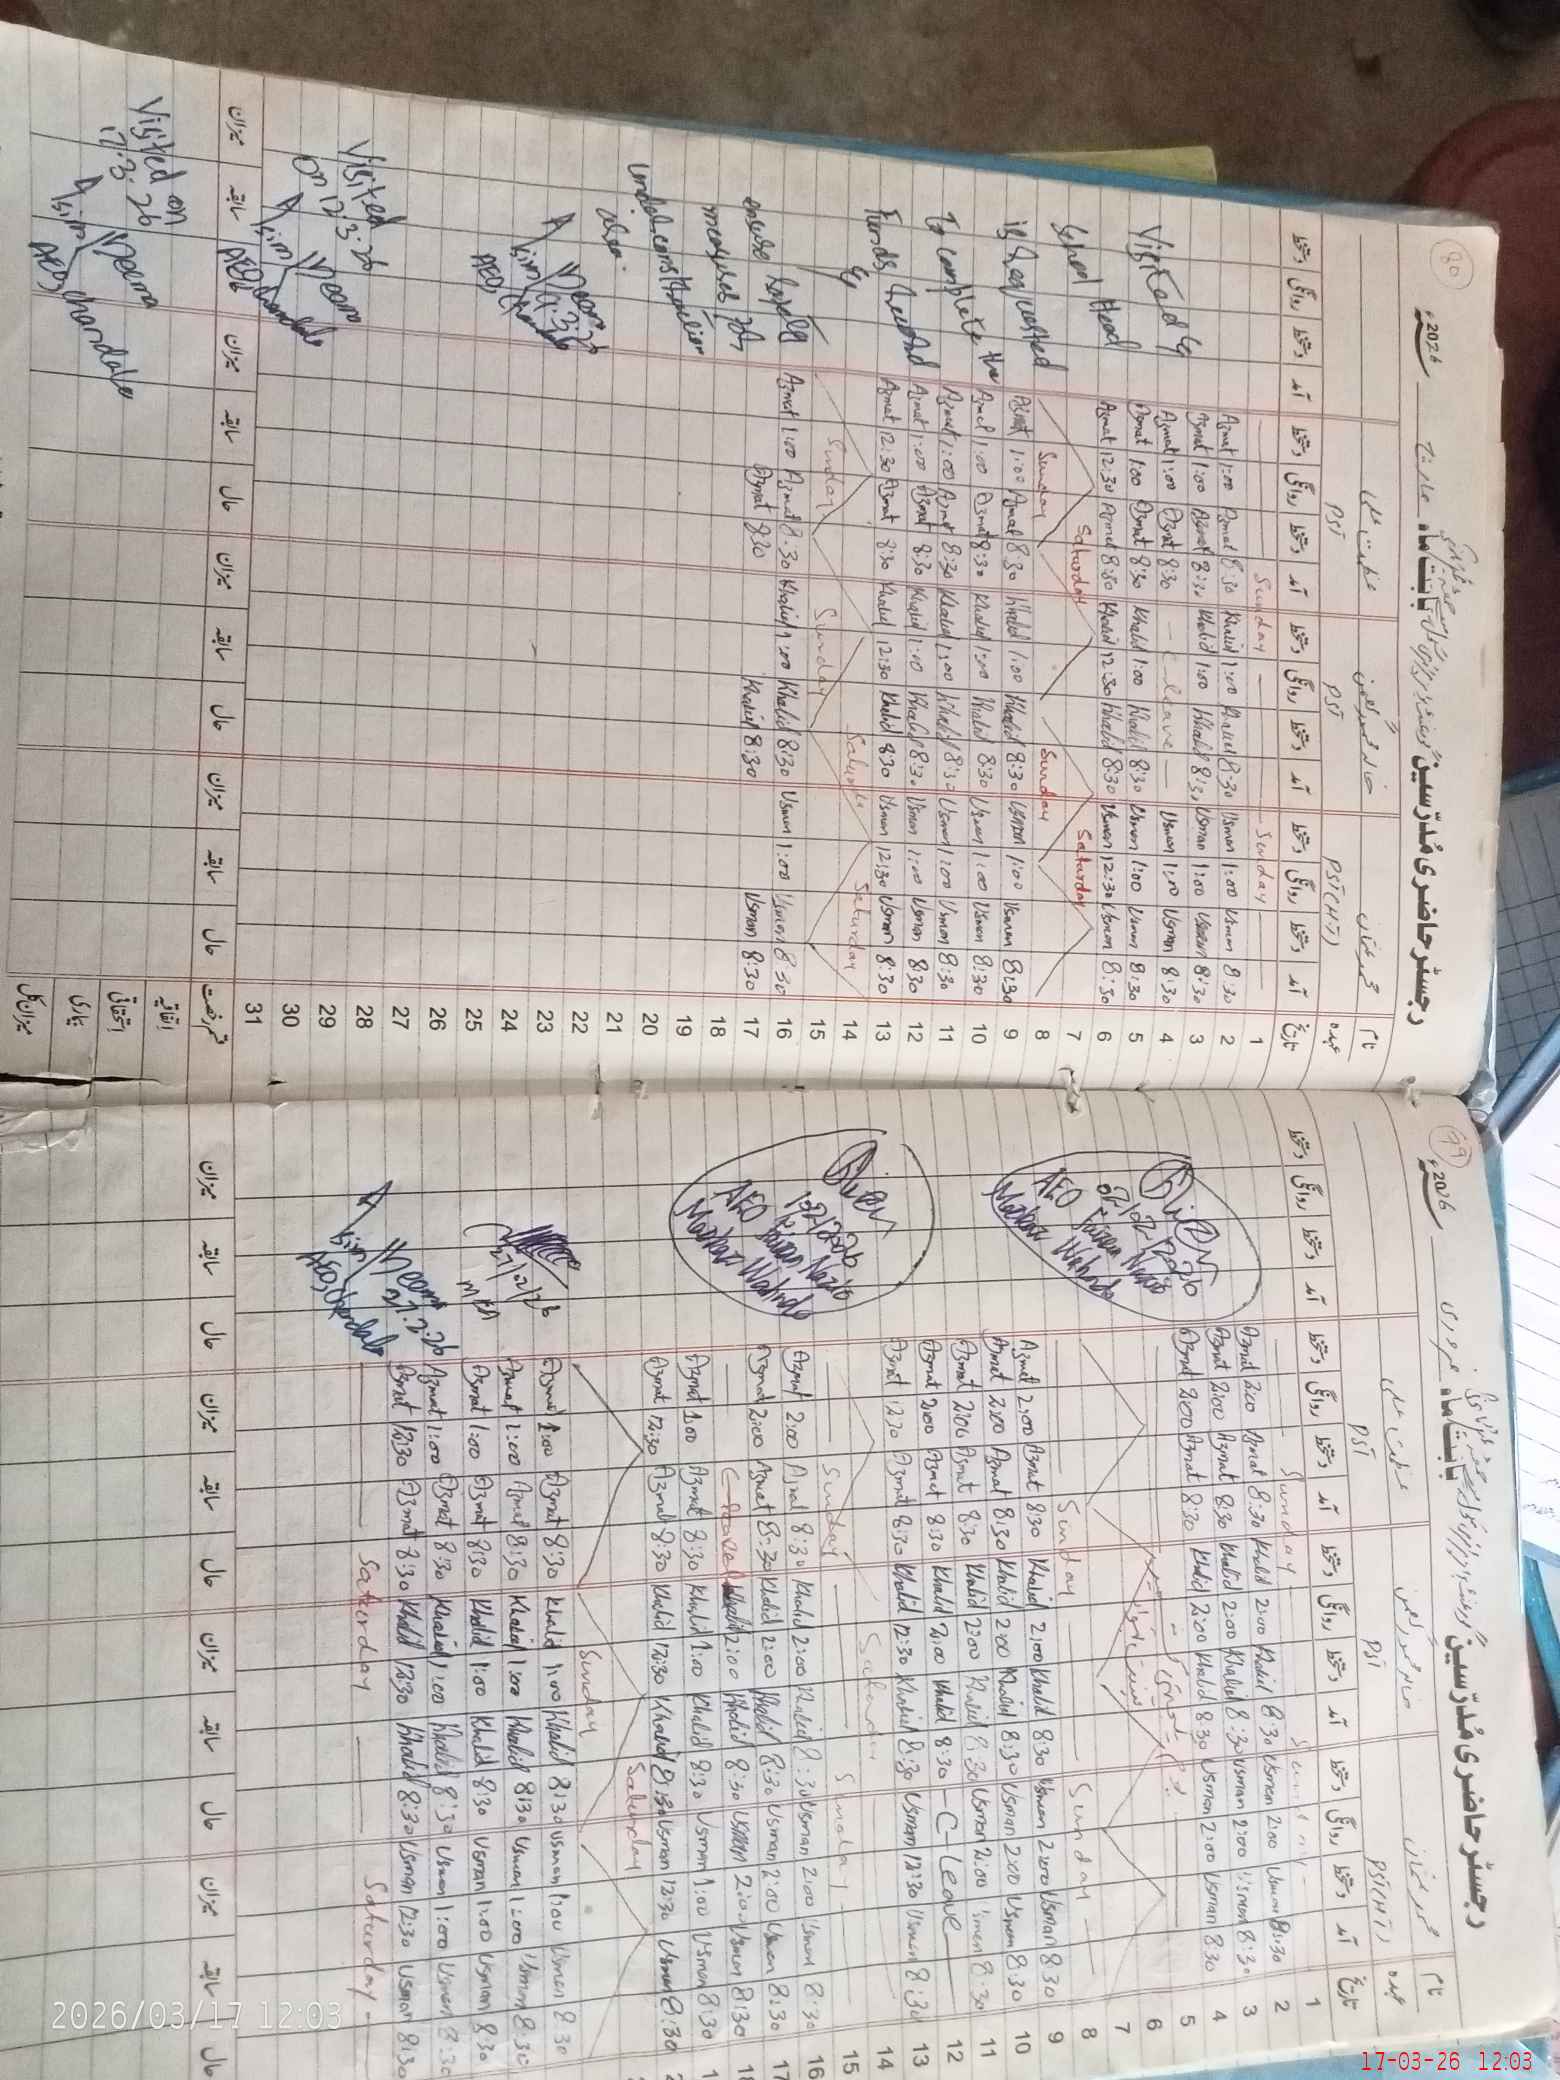 80
2026ء
رجسٹر حاضری مُدرّسین
بابت ماہ
مارچ
نام
عہدہ PST(HT) PST PST
تاریخ آمد دستخط روانگی دستخط آمد دستخط روانگی دستخط آمد دستخط روانگی دستخط آمد دستخط روانگی دستخط
1 Sunday Sunday
2 8:30 Usman 1:00 Usman 8:30 Khalid 1:00 Khalid 8:30 Azmat 1:00 Azmat
3 8:30 Usman 1:00 Usman 8:30 Khalid 1:00 Khalid 8:30 Azmat 1:00 Azmat
4 8:30 Usman 1:00 Usman — C-leave — 8:30 Azmat 1:00 Azmat
5 8:30 Usman 1:00 Usman 8:30 Khalid 1:00 Khalid 8:30 Azmat 1:00 Azmat
6 8:30 Usman 12:30 Usman 8:30 Khalid 12:30 Khalid 8:30 Azmat 12:30 Azmat
7 Saturday Saturday
8 Sunday Sunday
9 8:30 Usman 1:00 Usman 8:30 Khalid 1:00 Khalid 8:30 Azmat 1:00 Azmat
10 8:30 Usman 1:00 Usman 8:30 Khalid 1:00 Khalid 8:30 Azmat 1:00 Azmat
11 8:30 Usman 1:00 Usman 8:30 Khalid 1:00 Khalid 8:30 Azmat 1:00 Azmat
12 8:30 Usman 1:00 Usman 8:30 Khalid 1:00 Khalid 8:30 Azmat 1:00 Azmat
13 8:30 Usman 12:30 Usman 8:30 Khalid 12:30 Khalid 8:30 Azmat 12:30 Azmat
14 Saturday Saturday
15 Sunday Sunday
16 8:30 Usman 1:00 Usman 8:30 Khalid 1:00 Khalid 8:30 Azmat 1:00 Azmat
17 8:30 Usman 8:30 Khalid 8:30 Azmat
18
19
20
21
22
23
24
25
26
27
28
29
30
31
قسم رخصت حال سابقہ میزان حال سابقہ میزان حال سابقہ میزان حال سابقہ میزان
اتفاقیہ
استحقاقی
بیماری
میزان کل
Visited &
School Head
is requested
to complete the
Funds record
&
ensure safety
measures for
under construction
also.
Asim Neama
4.3.26
AEO, Chandala
Visited
on 12.3.26
Asim Neama
AEO, Chandala
Visited on
17.3.26
Asim Neama
AEO, Chandala
79
2026ء
رجسٹر حاضری مُدرّسین
بابت ماہ
فروری
نام
عہدہ PST(HT) PST PST
تاریخ آمد دستخط روانگی دستخط آمد دستخط روانگی دستخط آمد دستخط روانگی دستخط آمد دستخط روانگی دستخط
1 Sunday Sunday
2 8:30 Usman 2:00 Usman 8:30 Khalid 2:00 Khalid 8:30 Azmat 2:00 Azmat
3 8:30 Usman 2:00 Usman 8:30 Khalid 2:00 Khalid 8:30 Azmat 2:00 Azmat
4 8:30 Usman 2:00 Usman 8:30 Khalid 2:00 Khalid 8:30 Azmat 2:00 Azmat
5
6
7
8 Sunday Sunday
9 8:30 Usman 2:00 Usman 8:30 Khalid 2:00 Khalid 8:30 Azmat 2:00 Azmat
10 8:30 Usman 2:00 Usman 8:30 Khalid 2:00 Khalid 8:30 Azmat 2:00 Azmat
11 8:30 Usman 2:00 Usman 8:30 Khalid 2:00 Khalid 8:30 Azmat 2:00 Azmat
12 — C-leave — 8:30 Khalid 2:00 Khalid 8:30 Azmat 2:00 Azmat
13 8:30 Usman 12:30 Usman 8:30 Khalid 12:30 Khalid 8:30 Azmat 12:30 Azmat
14 Saturday
15 Sunday Sunday
16 8:30 Usman 2:00 Usman 8:30 Khalid 2:00 Khalid 8:30 Azmat 2:00 Azmat
17 8:30 Usman 2:00 Usman 8:30 Khalid 2:00 Khalid 8:30 Azmat 2:00 Azmat
18 8:30 Usman 2:00 Usman 8:30 Khalid 2:00 Khalid C-leave
8:30 Usman 1:00 Usman 8:30 Khalid 1:00 Khalid 8:30 Azmat 1:00 Azmat
8:30 Usman 12:30 Usman 8:30 Khalid 12:30 Khalid 8:30 Azmat 12:30 Azmat
Saturday
Sunday
8:30 Usman 1:00 Usman 8:30 Khalid 1:00 Khalid 8:30 Azmat 1:00 Azmat
8:30 Usman 1:00 Usman 8:30 Khalid 1:00 Khalid 8:30 Azmat 1:00 Azmat
8:30 Usman 1:00 Usman 8:30 Khalid 1:00 Khalid 8:30 Azmat 1:00 Azmat
8:30 Usman 1:00 Usman 8:30 Khalid 1:00 Khalid 8:30 Azmat 1:00 Azmat
8:30 Usman 12:30 Usman 8:30 Khalid 12:30 Khalid 8:30 Azmat 12:30 Azmat
Saturday Saturday
حال سابقہ میزان حال سابقہ میزان حال سابقہ میزان حال سابقہ میزان
02/02/2026
AEO
Markaz Wahndo
12/02/2026
AEO
Markaz Wahndo
21/2/26
MEA
Asim Neama
27.2.26
AEO, Chandala
2026/03/17 12:03
17-03-26 12:03